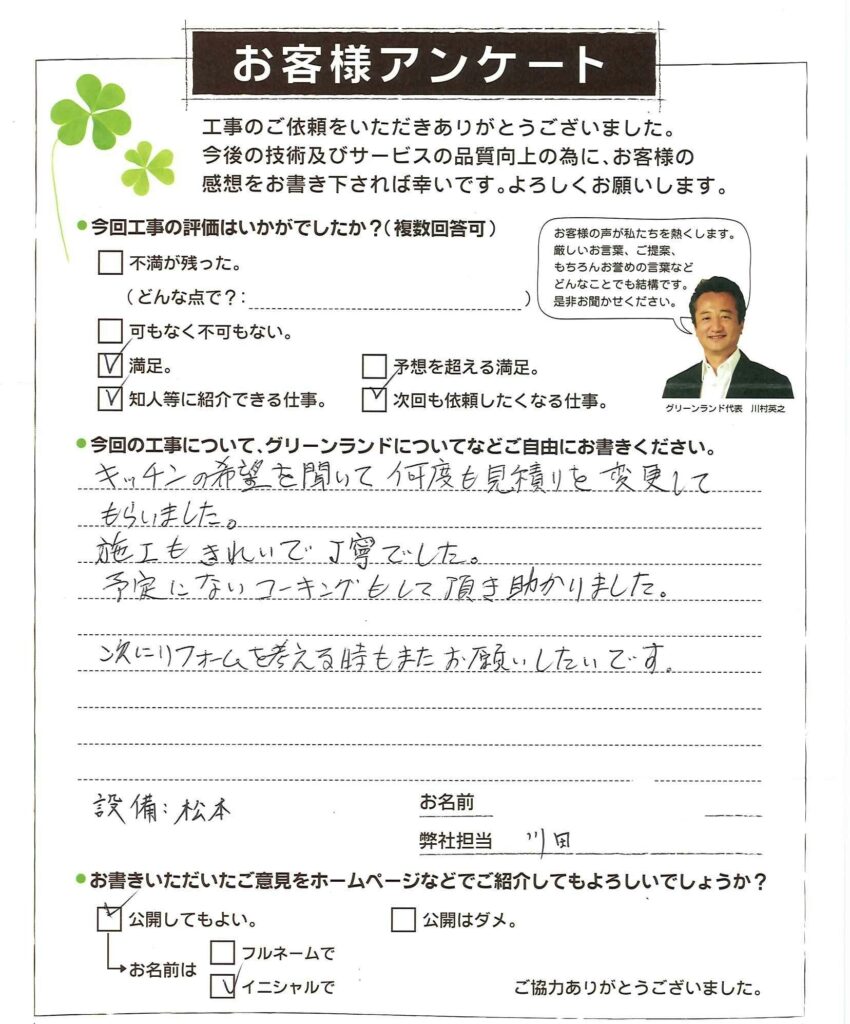 お客様アンケート
工事のご依頼をいただきありがとうございました。
今後の技術及びサービスの品質向上の為に、お客様の
感想をお書き下されば幸いです。よろしくお願いします。
今回工事の評価はいかがでしたか?(複数回答可)
不満が残った。
(どんな点で?: )
お客様の声が私たちを熱くします。
厳しいお言葉、ご提案、
もちろんお誉めの言葉など
どんなことでも結構です。
是非お聞かせください。
可もなく不可もない。
満足。 予想を超える満足。
知人等に紹介できる仕事。 次回も依頼したくなる仕事。
グリーンランド代表 川村英之
今回の工事について、グリーンランドについてなどご自由にお書きください。
キッチンの希望を聞いて何度も見積りを変更して
もらいました。
施工もきれいで丁寧でした。
予定にないコーキングもして頂き助かりました。
次にリフォームを考える時もまたお願いしたいです。
設備:松本 お名前
弊社担当 川田
お書きいただいたご意見をホームページなどでご紹介してもよろしいでしょうか?
公開してもよい。 公開はダメ。
お名前は フルネームで
イニシャルで
ご協力ありがとうございました。